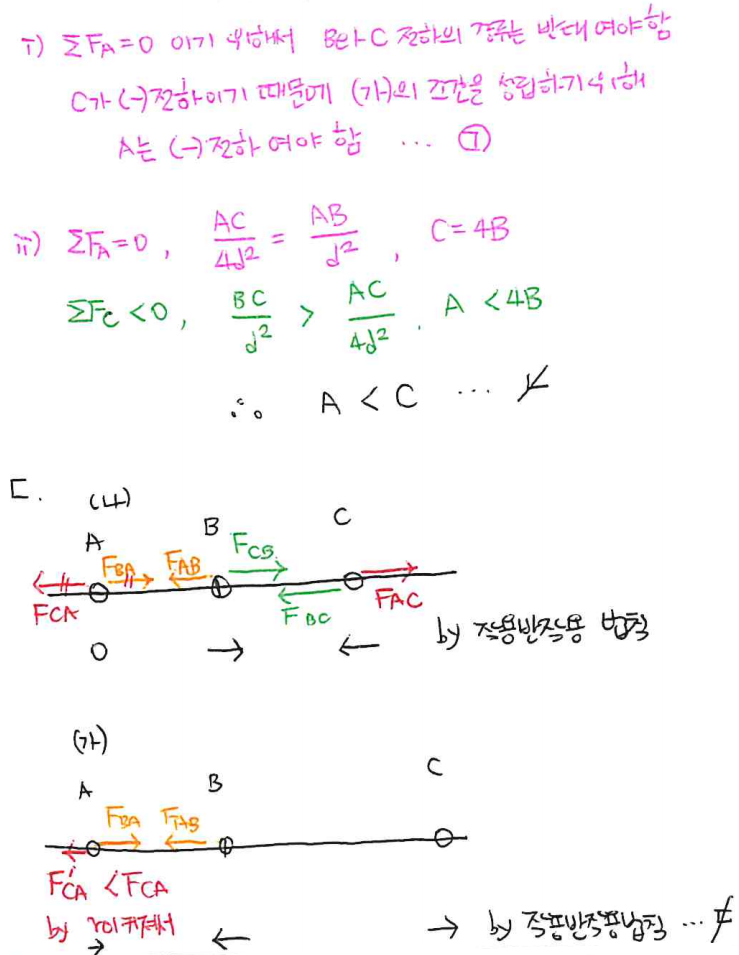 i) ΣF_A=0 이기 위해서 B와 C 전하의 경류는 반대여야함
C가 (-)전하이기 때문에 (가)의 조건을 성립하기위해
A는 (-)전하여야 함 … ㉠
ii) ΣF_A=0, AC/4d² = AB/d², C=4B
ΣF_C<0, BC/d² > AC/4d², A<4B
∴ A < C …
ㄷ. (나)
A B C
F_BA F_AB F_CB
F_CA F_BC F_AC
0 → ← by 작용반작용 법칙
(가)
A B C
F_BA F_AB
F'_CA < F_CA
by r이 커져서
→ ← → by 작용반작용법칙 …